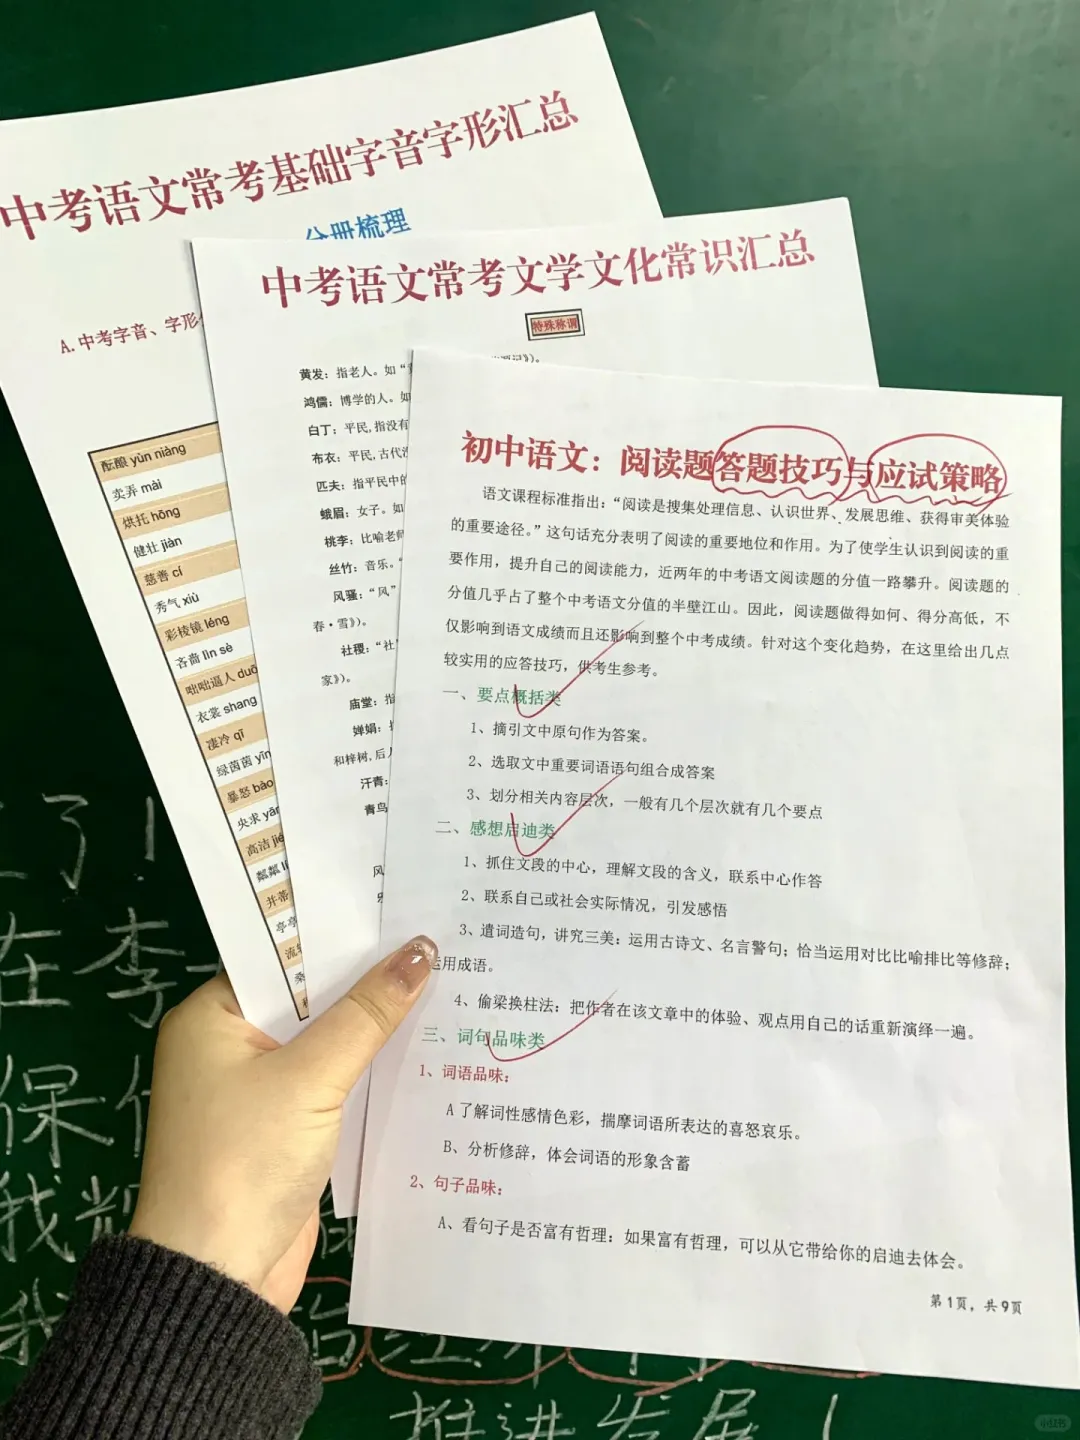 中考语文常考基础字音字形汇总
分册梳理
A.中考字音、字形
酝酿 yùn niàng
卖弄 mài
烘托 hōng
健壮 jiàn
慈善 cí
秀气 xiù
彩棱镜 léng
吝啬 lìn sè
咄咄逼人 duō
衣裳 shang
凄冷 qī
绿茵茵 yīn
暴怒 bào
央求 yāng
高洁 jié
粼粼
并蒂
亭亭
中考语文常考文学文化常识汇总
特殊称谓
黄发：指老人。如“
鸿儒：博学的人。如
白丁：平民,指没有
布衣：平民,古代
匹夫：指平民中的
蛾眉：女子。如
桃李：比喻老师
丝竹：音乐。“
风骚：“风”
春·雪》)。
社稷：“社
家》)。
庙堂：指
婵娟：
和梓树,后人
汗青：
青鸟
风
初中语文：阅读题答题技巧与应试策略
语文课程标准指出：“阅读是搜集处理信息、认识世界、发展思维、获得审美体验
的重要途径。”这句话充分表明了阅读的重要地位和作用。为了使学生认识到阅读的重
要作用，提升自己的阅读能力，近两年的中考语文阅读题的分值一路攀升。阅读题的
分值几乎占了整个中考语文分值的半壁江山。因此，阅读题做得如何、得分高低，不
仅影响到语文成绩而且还影响到整个中考成绩。针对这个变化趋势，在这里给出几点
较实用的应答技巧，供考生参考。
一、要点概括类
1、摘引文中原句作为答案。
2、选取文中重要词语语句组合成答案
3、划分相关内容层次，一般有几个层次就有几个要点
二、感想启迪类
1、抓住文段的中心，理解文段的含义，联系中心作答
2、联系自己或社会实际情况，引发感悟
3、遣词造句，讲究三美：运用古诗文、名言警句；恰当运用对比比喻排比等修辞；
运用成语。
4、偷梁换柱法：把作者在该文章中的体验、观点用自己的话重新演绎一遍。
三、词句品味类
1、词语品味：
A 了解词性感情色彩，揣摩词语所表达的喜怒哀乐。
B、分析修辞，体会词语的形象含蓄
2、句子品味：
A、看句子是否富有哲理：如果富有哲理，可以从它带给你的启迪去体会。
第 1 页，共 9 页
了！
在李
保
我
我
推进发展！
小红书